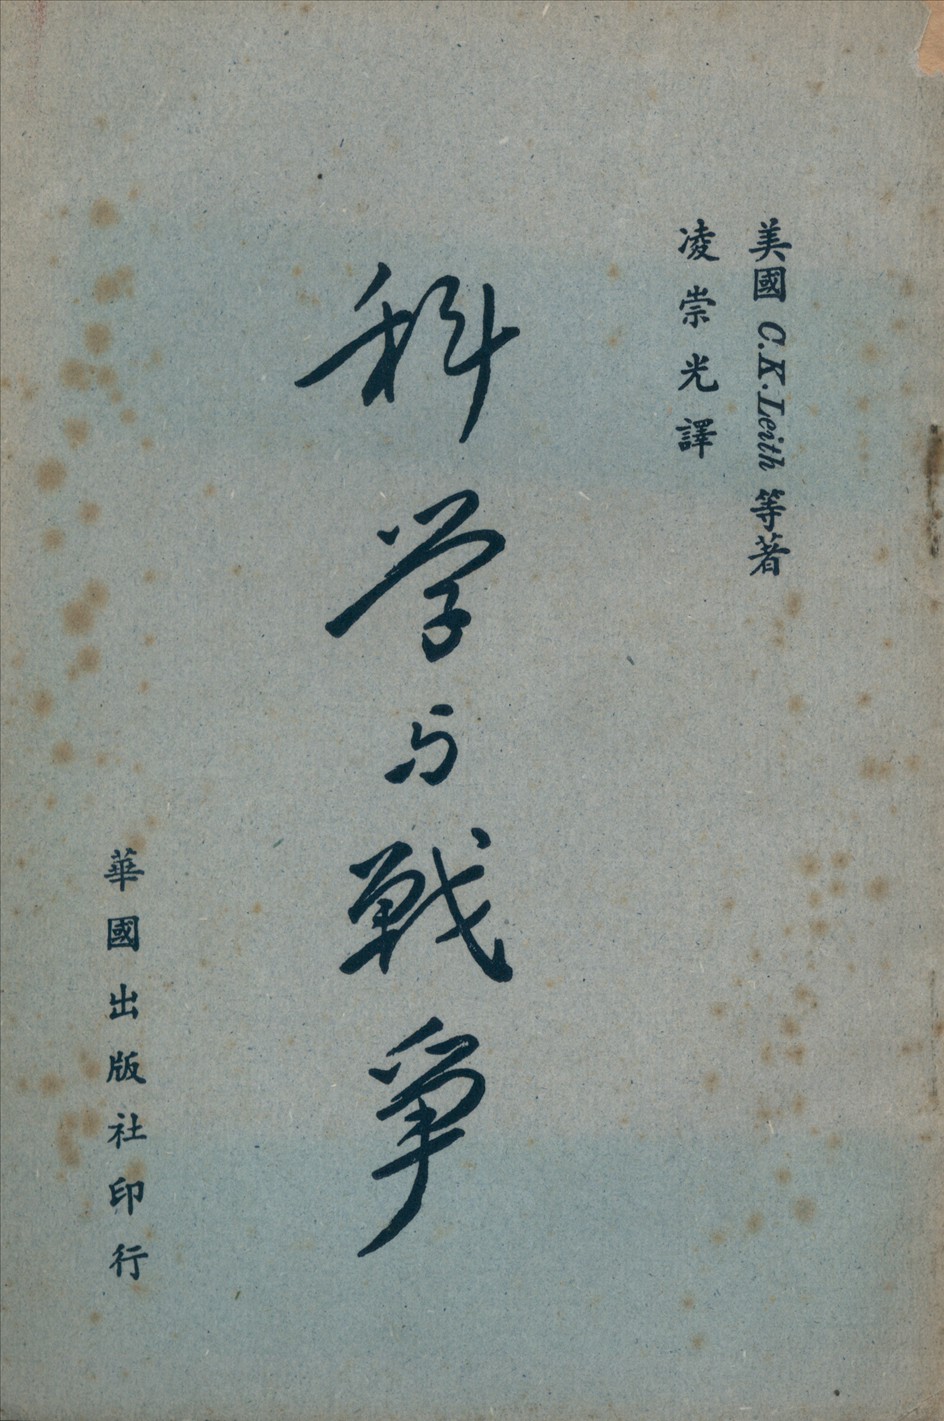 美國 C.K.Leith 等著
凌崇光譯
科学与戰爭
華國出版社印行